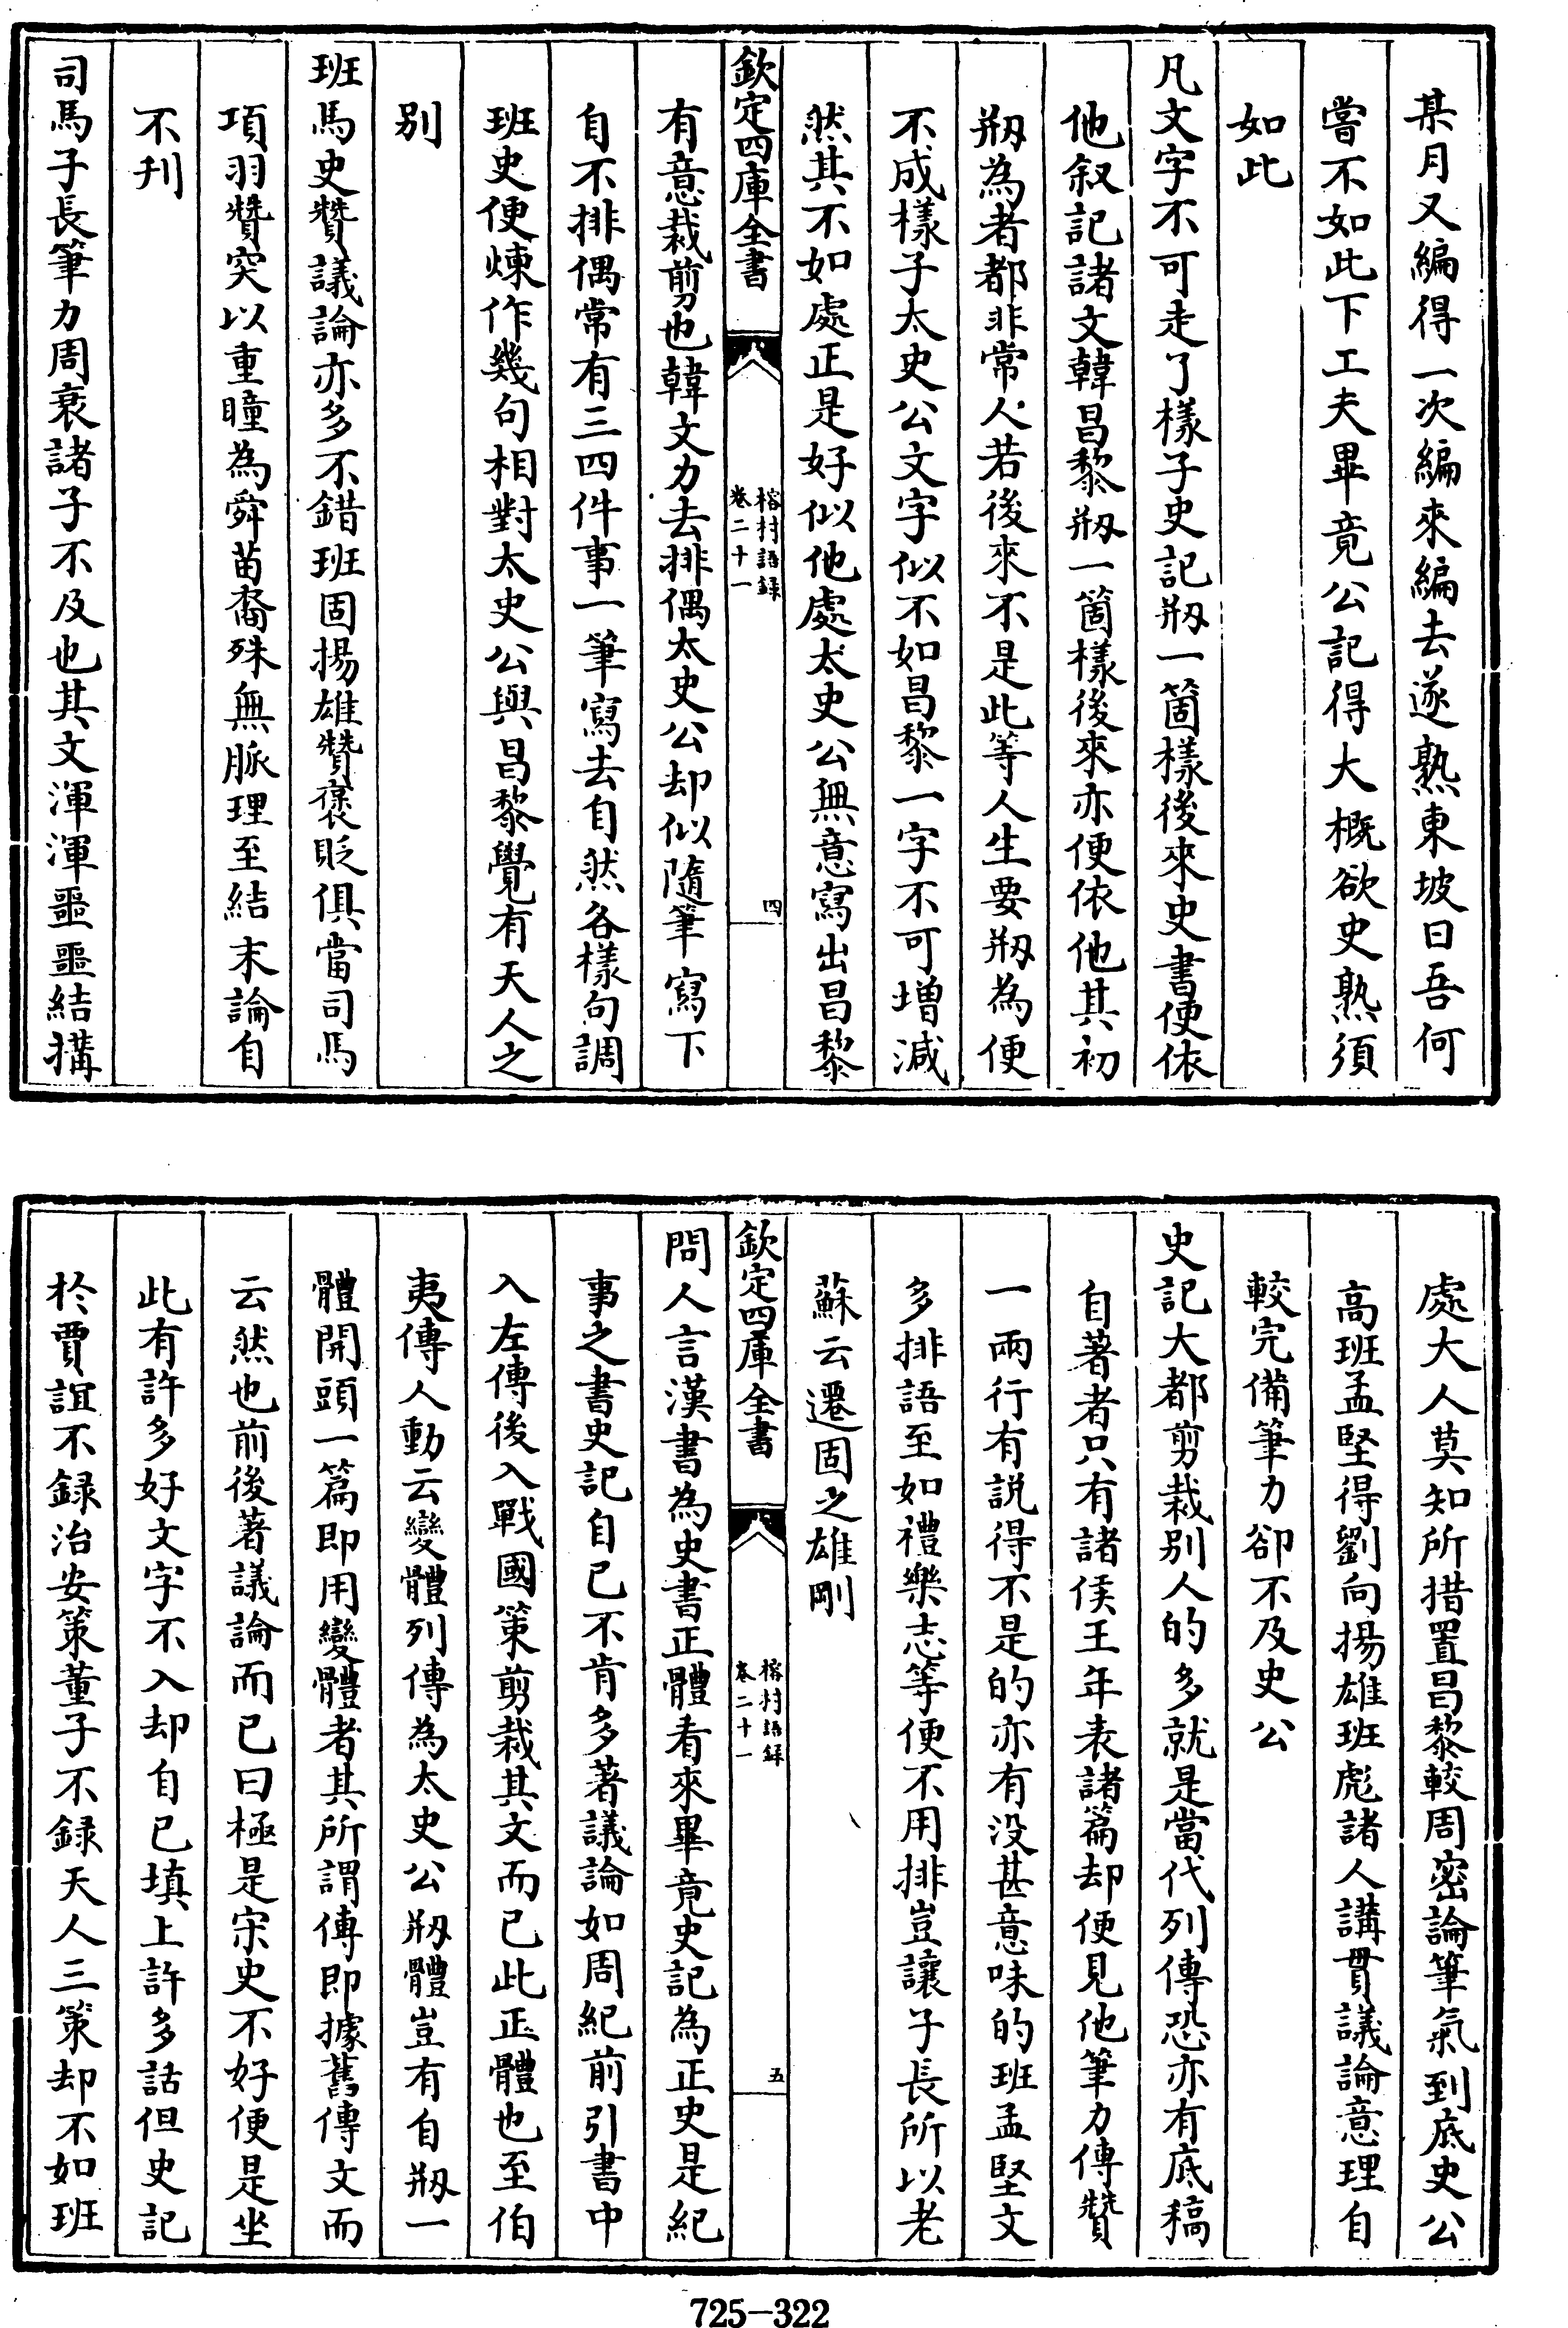 某月又編得一次編來編去遂熟東坡曰吾何
嘗不如此下工夫畢竟公記得大概欲史熟須
如此
凡文字不可走了樣子史記剏一箇樣後來史書便依
他叙記諸文韓昌黎剏一箇樣後來亦便依他其初
剏為者都非常人若後來不是此等人生要剏為便
不成樣子太史公文字似不如昌黎一字不可增減
然其不如處正是好似他處太史公無意寫出昌黎
欽定四庫全書
榕村語録
卷二十一
四
有意裁剪也韓文力去排偶太史公却似隨筆寫下
自不排偶常有三四件事一筆寫去自然各樣句調
班史便煉作幾句相對太史公與昌黎覺有天人之
別
班馬史贊議論亦多不錯班固揚雄贊褒貶俱當司馬
項羽贊突以重瞳為舜苗裔殊無脈理至結末論自
不刋
司馬子長筆力周衰諸子不及也其文渾渾噩噩結搆
處大人莫知所措置昌黎較周密論筆氣到底史公
高班孟堅得劉向揚雄班彪諸人講貫議論意理自
較完備筆力卻不及史公
史記大都剪裁别人的多就是當代列傳恐亦有底稿
自著者只有諸侯王年表諸篇却便見他筆力傳贊
一兩行有説得不是的亦有没甚意味的班孟堅文
多排語至如禮樂志等便不用排豈讓子長所以老
蘇云遷固之雄剛
欽定四庫全書
榕村語録
卷二十一
五
問人言漢書為史書正體看來畢竟史記為正史是紀
事之書史記自已不肯多著議論如周紀前引書中
入左傳後入戰國策剪裁其文而已此正體也至伯
夷傳人動云變體列傳為太史公剏體豈有自剏一
體開頭一篇即用變體者其所謂傳即據舊傳文而
云然也前後著議論而已曰極是宋史不好便是坐
此有許多好文字不入却自已填上許多話但史記
於賈誼不録治安策董子不録天人三策却不如班
725-322